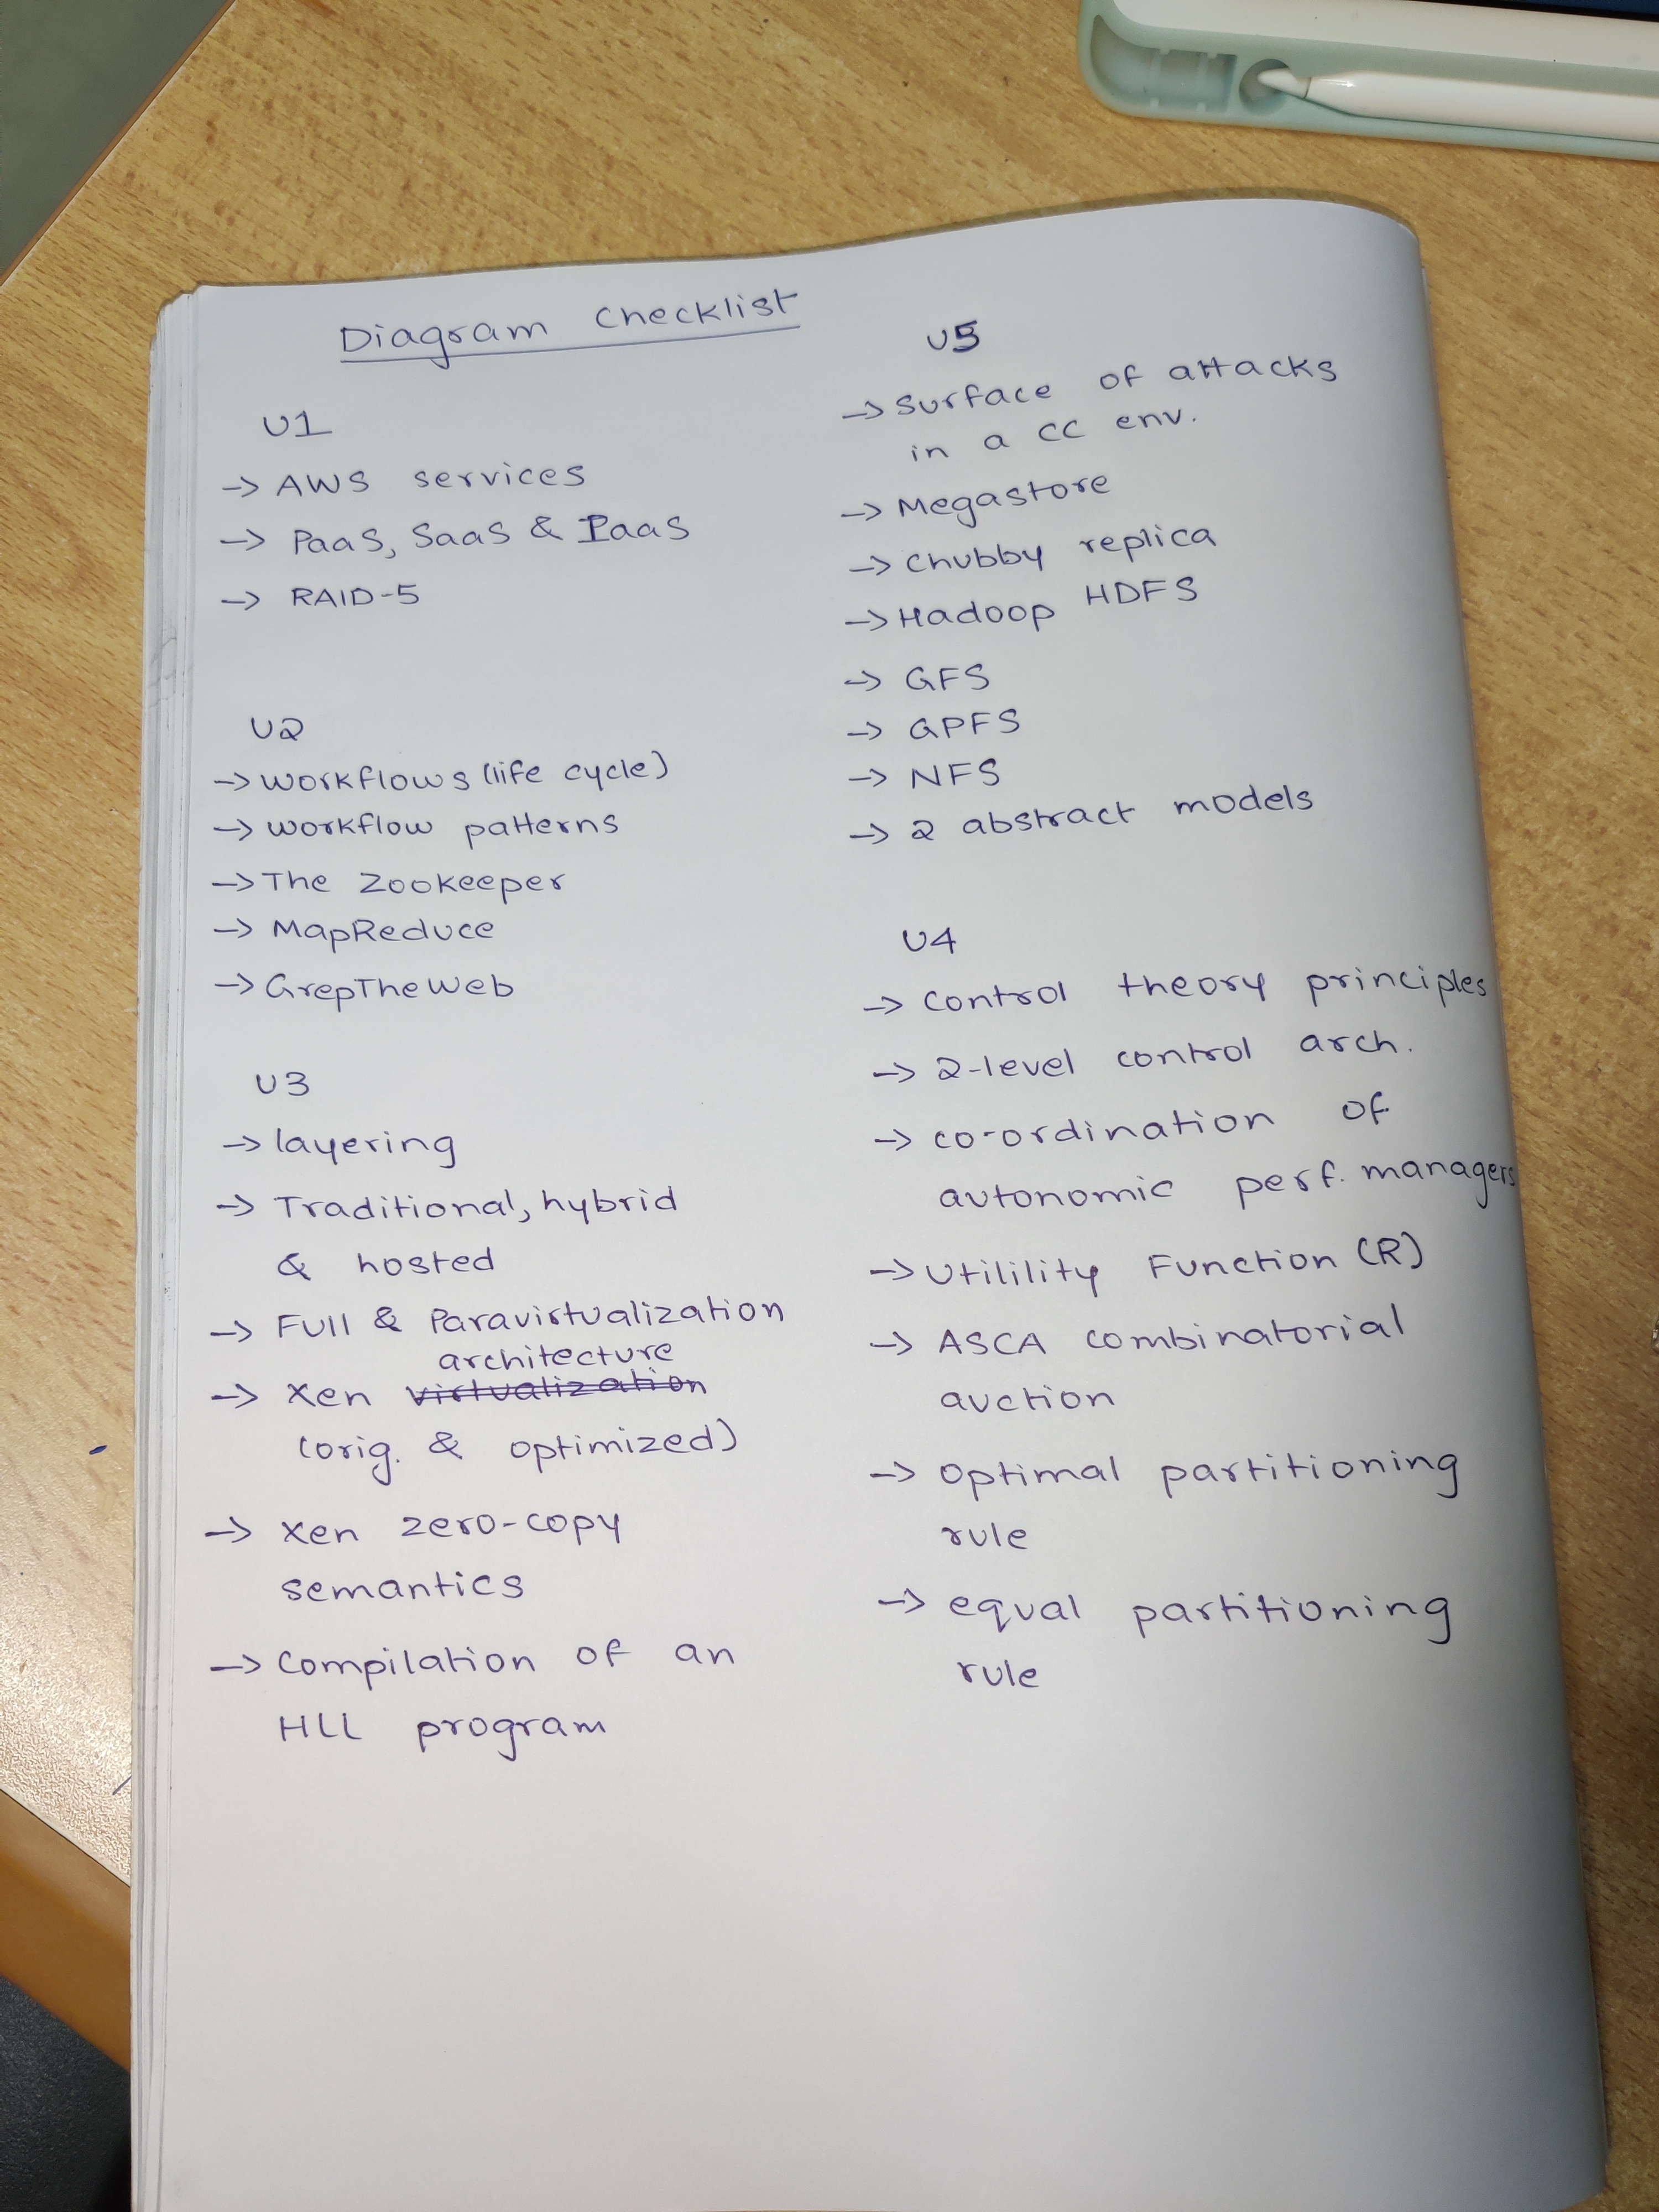 Diagram Checklist
U1
→ AWS services
→ PaaS, SaaS & IaaS
→ RAID-5
U2
→ Workflows (life cycle)
→ Workflow patterns
→ The Zookeeper
→ MapReduce
→ GrepTheWeb
U3
→ layering
→ Traditional, hybrid
& hosted
→ Full & Paravirtualization
architecture
→ Xen virtualization
(orig. & optimized)
→ Xen zero-copy
semantics
→ Compilation of an
HLL program
U5
→ Surface of attacks
in a CC env.
→ Megastore
→ Chubby replica
→ Hadoop HDFS
→ GFS
→ GPFS
→ NFS
→ 2 abstract models
U4
→ Control theory principles
→ 2-level control arch.
→ co-ordination of
autonomic perf. managers
→ Utilility Function (R)
→ ASCA combinatorial
auction
→ Optimal partitioning
rule
→ equal partitioning
rule